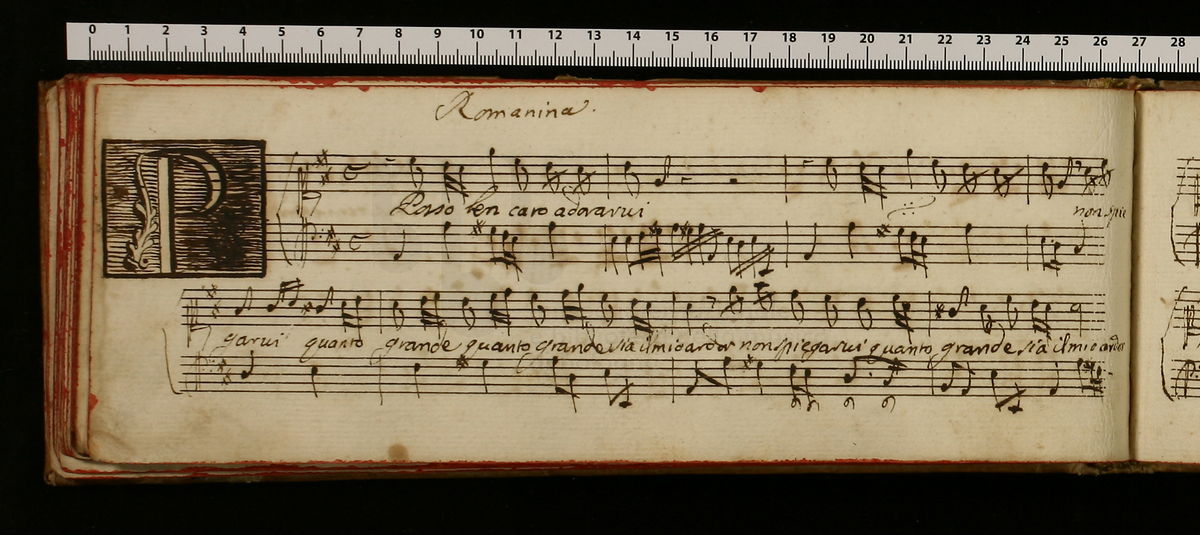 0 1 2 3 4 5 6 7 8 9 10 11 12 13 14 15 16 17 18 19 20 21 22 23 24 25 26 27 28
Romanina.
P
Poso ben caro adorarui non spie
garui quanto grande quanto grande sia il mio ardor non spiegarui quanto grande sia il mio ardor